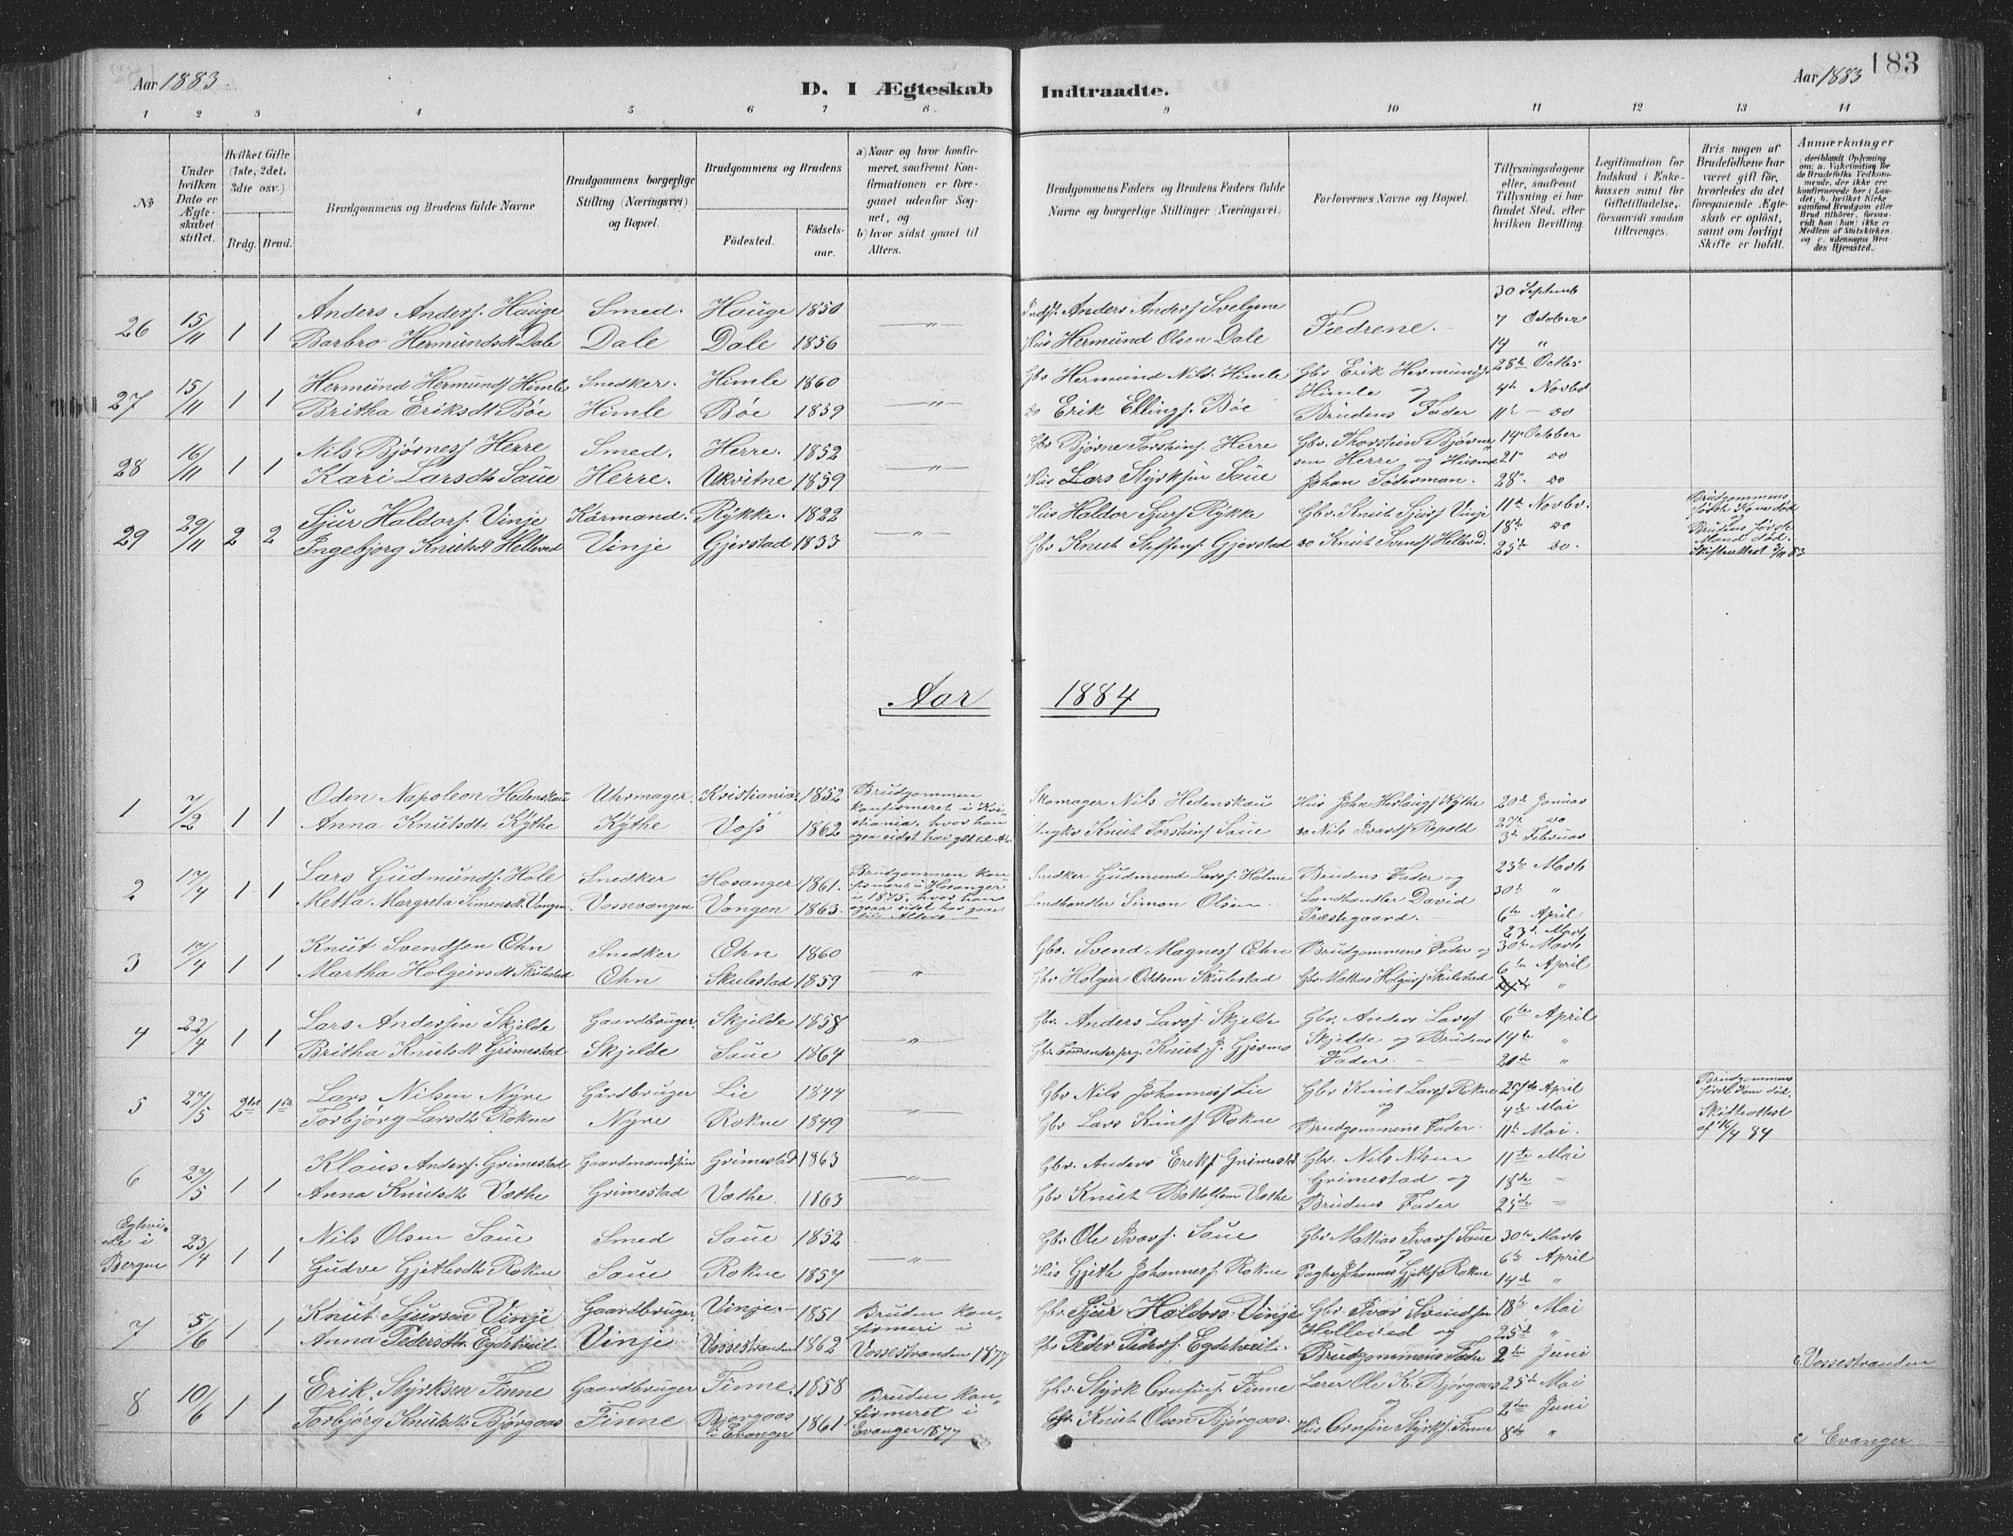 183
Aar 1883.
D. I Ægteskab
Indtraadte.
Aar 1883
1 2 3 4 5 6 7 8. 9 10 11 12 13 14
№
Under hvilken Dato er Ægteskabet stiftet.
Hvilket Gifte (1ste, 2det, 3die osv.)
Brdg. Brud.
Brudgommens og Brudens fulde Navne
Brudgommens borgerlige Stilling (Næringsvei) og Bopæl.
Brudgommens og Brudens
Födested.
Födselsaar.
a) Naar og hvor konfirmeret, saafremt Konfirmationen er foregaaet udenfor Sognet, og
b) hvor sidst gaaet til Alters.
Brudgommens Faders og Brudens Faders fulde Navne og borgerlige Stillinger (Næringsvei)
Forlovernes Navne og Bopæl.
Tillysningsdagene eller, saafremt Tillysning ei har fundet Sted, efter hvilken Bevilling.
Legitimation for Indskud i Enkekassen samt for Giftetilladelse, forsaavidt saadan tiltrænges.
Hvis nogen af Brudefolkene har været gift før, hvorledes da det foregaaende Ægteskab er oplöst, samt om lovligt Skifte er holdt.
Anmærkninger
26 15/11 1 1 Anders Anders. Hauge Smed. Hauge 1850 — " — Anders Anders Svelgene Fædrene. 30 Septemb
Barbro Hermundsdt Dale Dale Dale 1856 Hus Hermund Olsen Dale 7 October
14 "
27 15/11 1 1 Hermund Hermunds Himle Snedker. Himle 1860 — " — Gbr Hermund Nils. Himle Gbr Erik Hermunds 28de Octbr
Britha Eriksdt Bøe Himle Bøe 1859 do Erik Ellings. Bøe Himle og 4de Novbr
Brudens Fader 11te — do
28 16/11 1 1 Nils Bjørnes Herre Smed. Herre. 1852 — " — Gbr Bjørne Torsteins Herre Gbr. Thorstein Bjørne 14de October
Kari Larsdt Saue Herre. Ukvitne 1859 Hus Lars Styrksen Saue sen Herre og Husmd 21" do
Johan Söderman. 28" do
29 29/11 2 2 Sjur Haldors. Vinje Kårmand. Rykke. 1822 — " — Hus Haldor Sjurs Rykke Gbr. Knut Sjurs Vinje 11te Novbr. Brudgommens første Kone død
Ingebjørg Knutsdt Helleved Vinje Gjerstad 1833 Gbr Knut Steffens Gjerstad do Knut Svends Helleved. 18de do og Brudens første Mand død.
25de do. Skifteattest
Aar 1884
1 7/2 1 1 Oden Napoleon Hedenskau Uhrmager. Kristiania 1852 Brudgommen konfirmeret i Kri- Skomager Nils Hedenskau Hus John Herlaugs Kythe 20de Januar
Anna Knutsdt Kythe Kythe Voss 1862 stiania, hvor han ogsaa sidst har gaaet til Alt. Knut Torsteins Saue do Nils Ivars Repold 27de do
3de Februar
2 17/4 1 1 Lars Gudmunds. Hole Snedker Hosanger 1861. Brudgommen kon- fismeret i Hosanger Snedker Gudmund Lars. Holme Brudens Fader og 23de Marts
Metta Margreta Simensdt. Vangen. Vossevangen Vangen 1863. i 1875, hvor han ogsaa sidst har gaaet til Alters Landhandler Simon Olsen Landhandler David 30de "
Præstegaard. 6te April
3 17/4 1 1 Knut Svendsen Ohn Snedker Ohn 1860 — " — Gbr. Svend Magnes. Ohn Brudgommens Fader og 23de Marts
30de Marts
Martha Holgeirsdt Skulestad Ohn Skulestad 1859 Gbr Holgeir Oddsen Skulestad Gbr. Mathias Holgeirs Skulestad 6te April
"
4 22/4 1 1 Lars Andersen Skjelde Gaardbruger. Skjelde 1858 — " — Gbr. Anders Lars. Skjelde Gbr. Anders Lars. 6te April
Britha Knutsdt Grimestad Skjelde Saue 1864 Gbr. Knut J. Gjerme Skjelde og Brudens 14de "
Fader. 20de "
5 27/5 2det 1ste Lars Nilsen Nyre Gårdbruger Lie 1844 Gbr Nils Johannes. Lie Gbr Knut Lars Rokne 25de April Brudgommens første Kone død.
Torbjørg Larsdt Rokne Nyre Rokne 1849 Gbr Lars Knuts Rokne og 4de Mai Skifteattest
Brudgommens Fader. 11te Mai. af 16/4 84
6 27/5 1 1 Klaus Anders. Grimestad Gaardmandssøn Grimestad 1863 — " — Gbr. Anders Eriks Grimestd Gbr. Nils Nilsen 11te Mai
Anna Knutsdt Væthe Grimestad Væthe 1863 Gbr Knut Bottolfsen Væthe Grimestad og 18de "
Brudens Fader 25de "
Egtvi- ede i Bergen 23/4 1 1 Nils Olsen Saue Smed Saue 1852 — " — Gbr Ole Ivars. Saue Gbr Mathias Ivars Saue 30te Marts
Gudve Gjetlesdt Rokne Saue Rokne 1857 Hus Gjetle Johannes. Rokne og Johannes Gjetles Rokne 6te April
14de "
7 5/6 1 1 Knut Sjursen Vinje Gaardbruger. Vinje 1851 Bruden kon- firmeri i Gbr Sjur Haldors. Vinje Gbr. Ivar Svendsen 18de Mai
Anna Pedersdt Egdetveit Vinje Vossestranden 1862 Vossestranden 1877 Gbr Peder Peders. Egdetveit. Helleved og 25de "
Brudgommens Fader 2den Juni c. Vossestranden
8 10/6 1 1 Erik Styrksen Finne Gaardbruger Finne. 1858 Bruden kon- firmeret i Gbr. Styrk Finne Lærer Ole K. Bjørgaas 25de Mai
Torbjørg Knutsdt Bjørgaas Finne Bjørgaas i Evanger 1861 Evanger 1877 Gbr. Knut Olsen Bjørgaas. og 2den Juni
Hus Styrks. Finne 8de " c Evanger